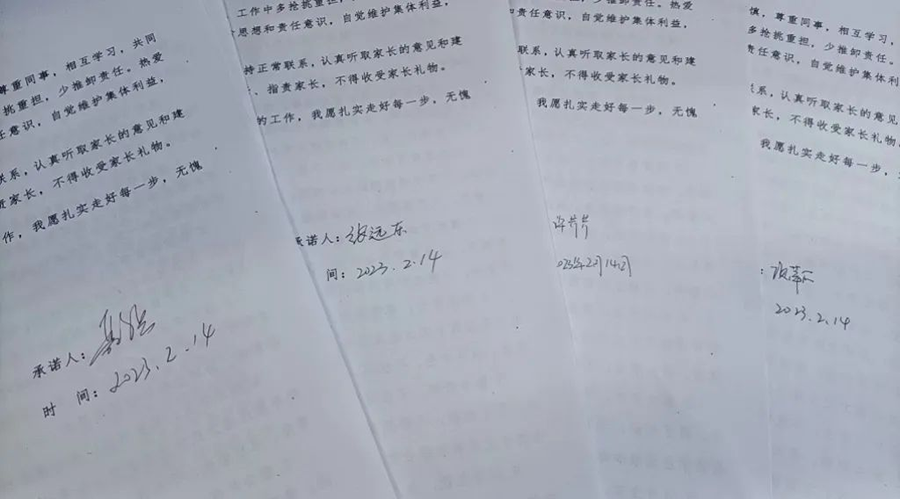 尊重同事，相互学习，共同
挑重担，少推卸责任。热爱
任意识，自觉维护集体利益，
联系，认真听取家长的意见和建
责家长，不得收受家长礼物。
作，我愿扎实走好每一步，无愧
承诺人：
时 间：2023.2.14
工作中多抢挑重担，
思想和责任意识，自觉维护集体利益，
持正常联系，认真听取家长的意见和建
、指责家长，不得收受家长礼物。
的工作，我愿扎实走好每一步，无愧
承诺人：张远东
间：2023.2.14
多抢挑重担，少推卸责任。热爱
和责任意识，自觉维护集体利益，
联系，认真听取家长的意见和建
家长，不得收受家长礼物。
我愿扎实走好每一步，无愧
023年2月14日
慎，尊重同事，相互学习，
多抢挑重担，少推卸责任。
责任意识，自觉维护集体利
系，认真听取家长的意见
家长，不得收受家长礼物。
我愿扎实走好每一步，
：
2023.2.14